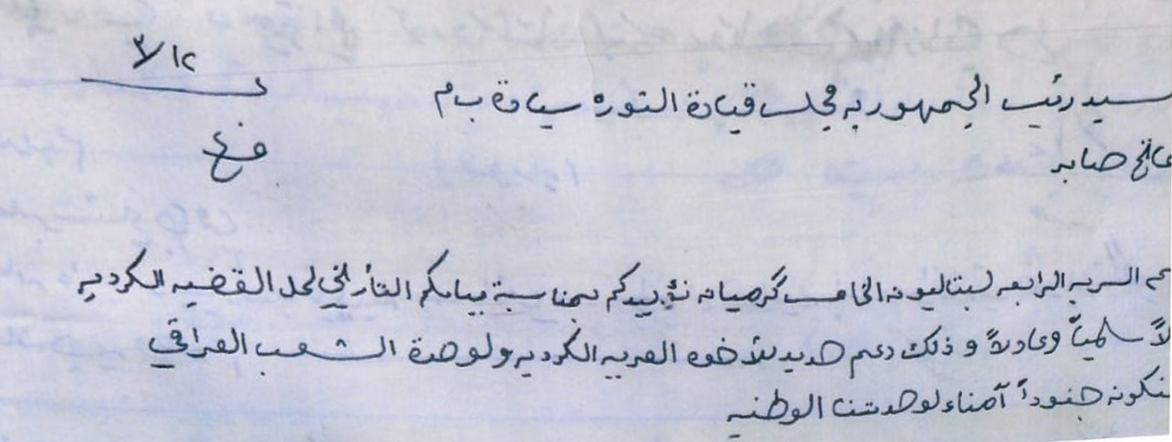 ٣/١٢
سيد رئيس الجمهوريه مجلس قيادة الثوره سيادة ب م
صابر
السريه الرابعه لبتاليونه الخامس گرميانه نؤييدكم بمناسبة بيانكم التأريخي لحل القضيه الكرديه
لاً سلمياً وعادلاً و ذلك دعم جديد للأخوه العربيه الكرديه ولوحدة الشعب العراقي
نكونه جنوداً آمناء لوحدتنا الوطنيه